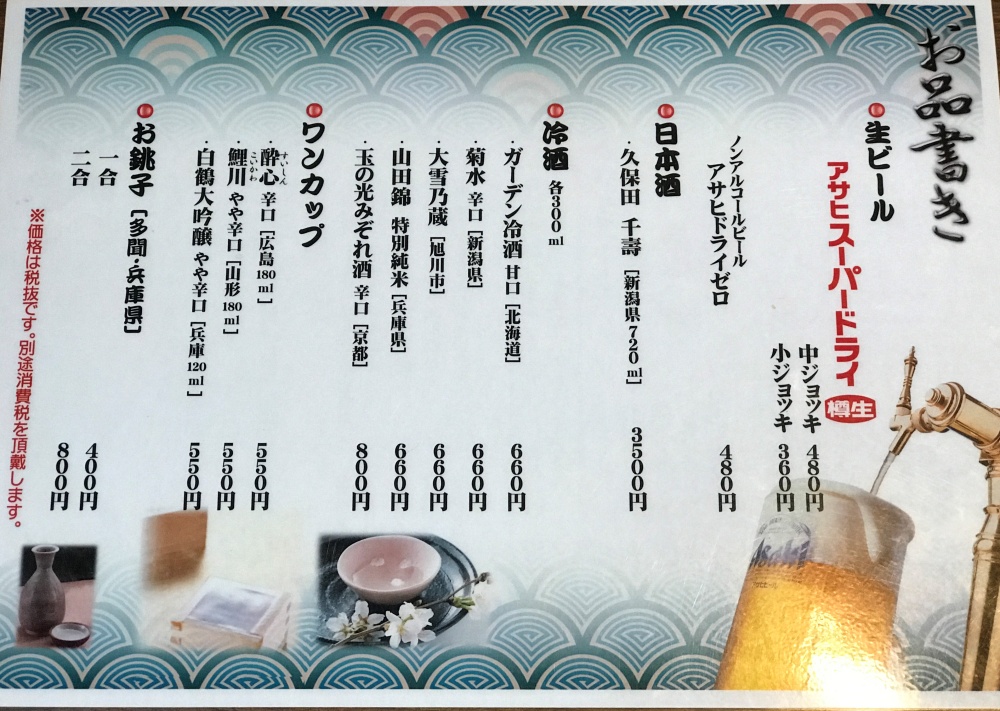 お品書き
生ビール
アサヒスーパードライ 樽生
中ジョッキ 480円
小ジョッキ 360円
ノンアルコールビール
アサヒドライゼロ 480円
日本酒
・久保田 千壽 [新潟県720ml] 3500円
冷酒 各300ml
・ガーデン冷酒 甘口 [北海道] 660円
・菊水 辛口 [新潟県] 660円
・大雪乃蔵 [旭川市] 660円
・山田錦 特別純米 [兵庫県] 660円
・玉の光みぞれ酒 辛口 [京都] 800円
ワンカップ
・酔心 すいしん 辛口 [広島180ml] 550円
・鯉川 こいかわ やや辛口 [山形180ml] 550円
・白鶴大吟醸 やや辛口 [兵庫120ml] 550円
お銚子 [多聞・兵庫県]
一合 400円
二合 800円
※価格は税抜です。別途消費税を頂戴します。
Asahi